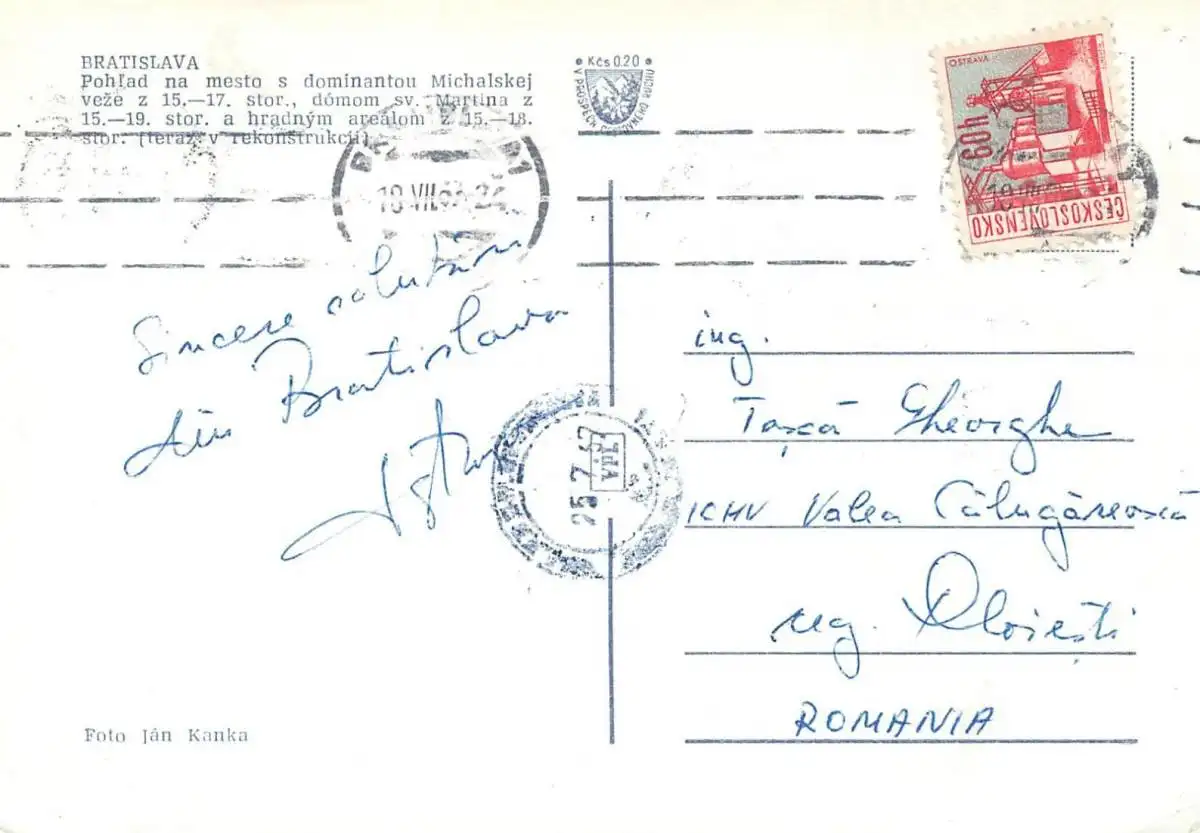 BRATISLAVA
Pohľad na mesto s dominantou Michalskej
veže z 15.—17. stor., dómom sv. Martina z
15.—19. stor. a hradným areálom z 15.—18.
stor. (teraz v rekonštrukcii)
Kčs 0.20
V PROSPECH CESTOVNÉHO RUCHU
OSTRAVA
60h
ČESKOSLOVENSKO
18.VII.
-24
Sincere salutări
din Bratislava
25.7.67
ing.
Tașcă Gheorghe
ICHV Valea Călugărească
reg. Ploiești
ROMANIA
Foto Ján Kanka